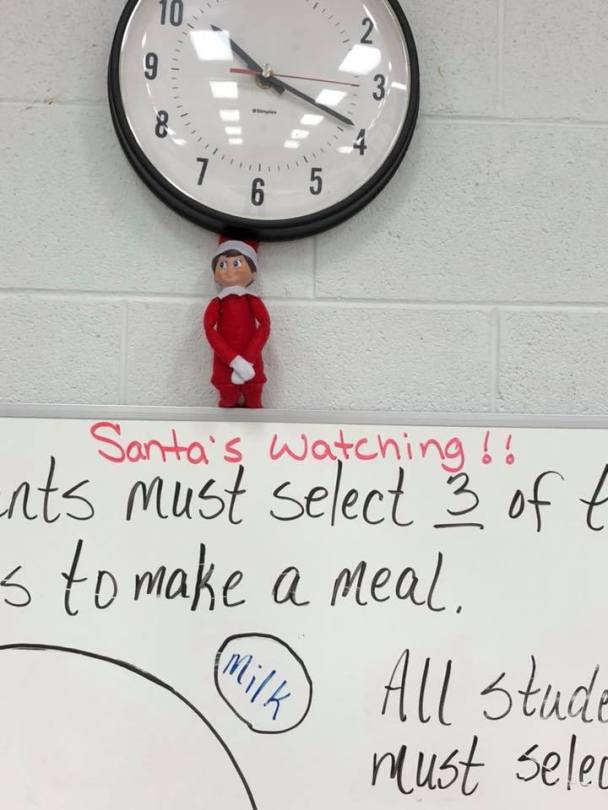 10
2
9
3
8
4
7
6
5
Simplex
Santa's Watching!!
nts must select 3 of t
s to make a meal.
Milk
All stude
must selec